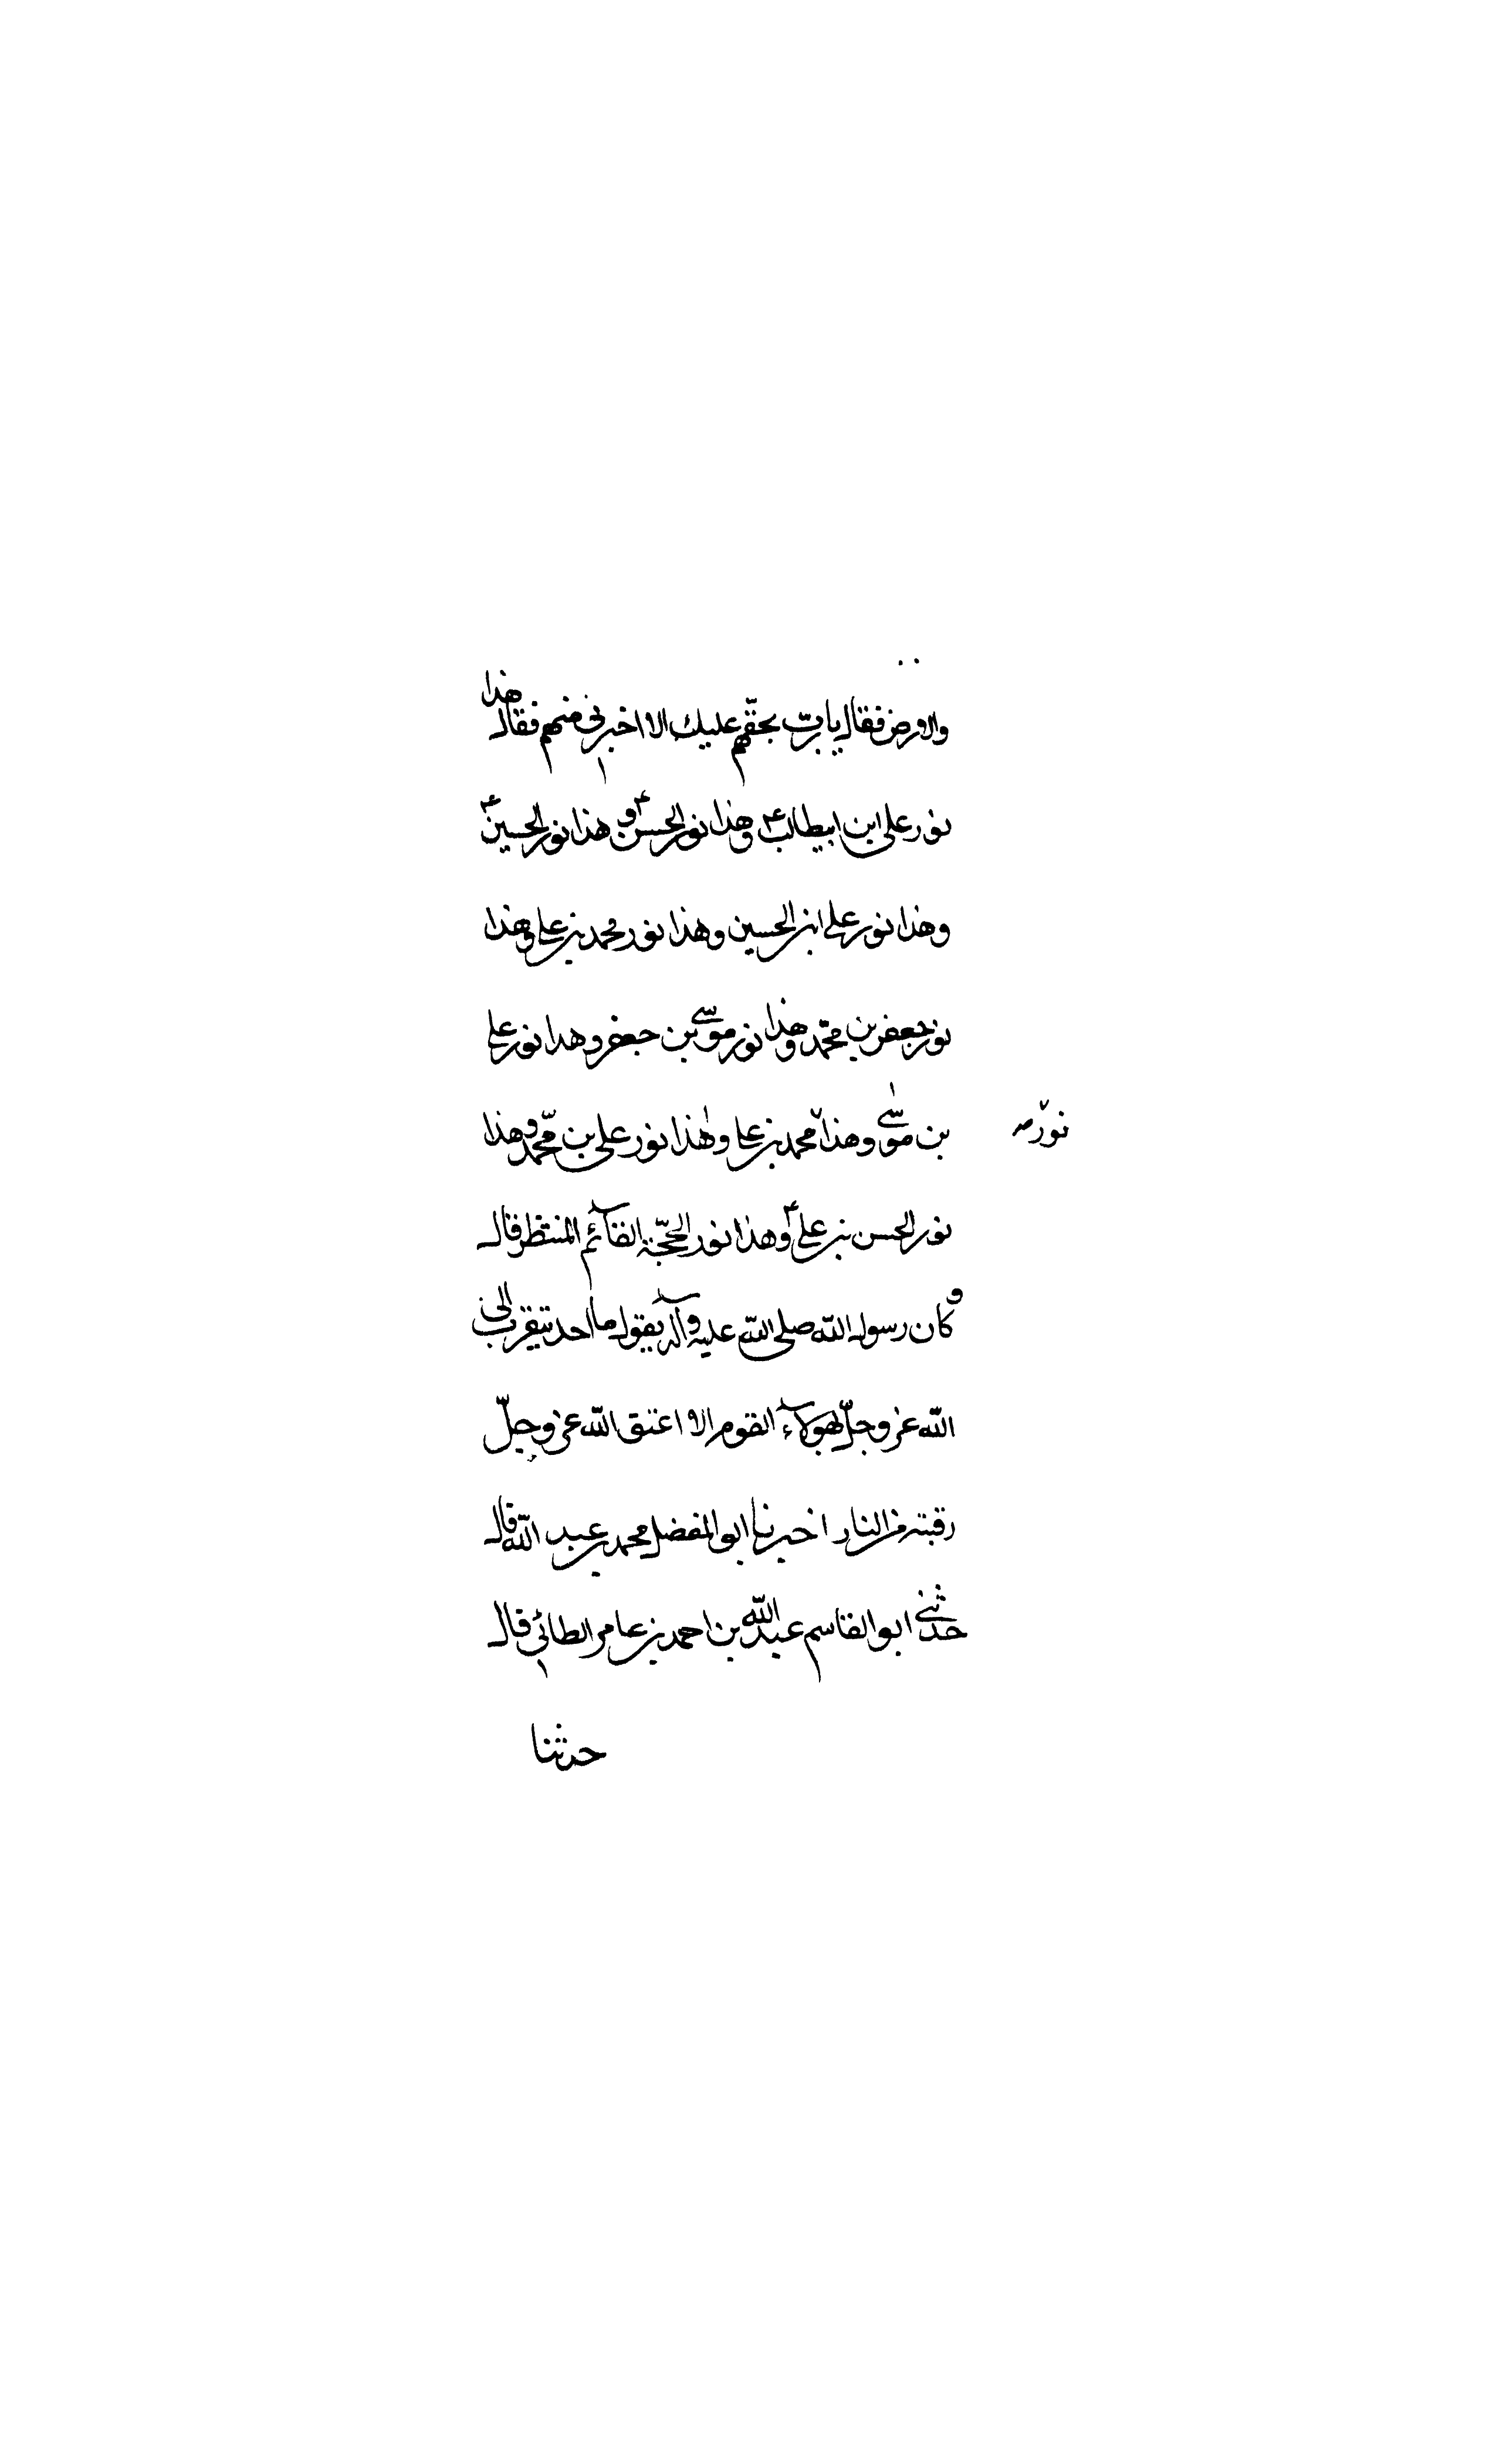 والارض فقال يا رب بحقّهم عليك الا اخبرنى منهم فقال هذا
نور على ابن ابيطالب ع وهذا نور الحسن ع و هذا نور الحسين ع
وهذا نور على ابن الحسين وهذا نور محمد بن على وهذا
نور جعفر بن محمّد وهذا نور موسى بن جعفر وهذا نور على
بن موسٰى وهذا محمد بن على وهٰذا نور على بن محمّد وهذا
نور صه
نور الحسن بن على ع وهذا نور الحجّة القآئم المنتظر قال
و كان رسول الله صلى الله عليه وآله يقول ما احد يتقرب الى
الله عز وجلّ بهؤلآء القوم الا اعتق الله عز وجلّ
رقبته من النار اخبرنا ابو المفضل محمد بن عبد الله قال
حدثنى ابو القاسم عبد الله بن احمد بن عامر الطائى قال
حدثنا